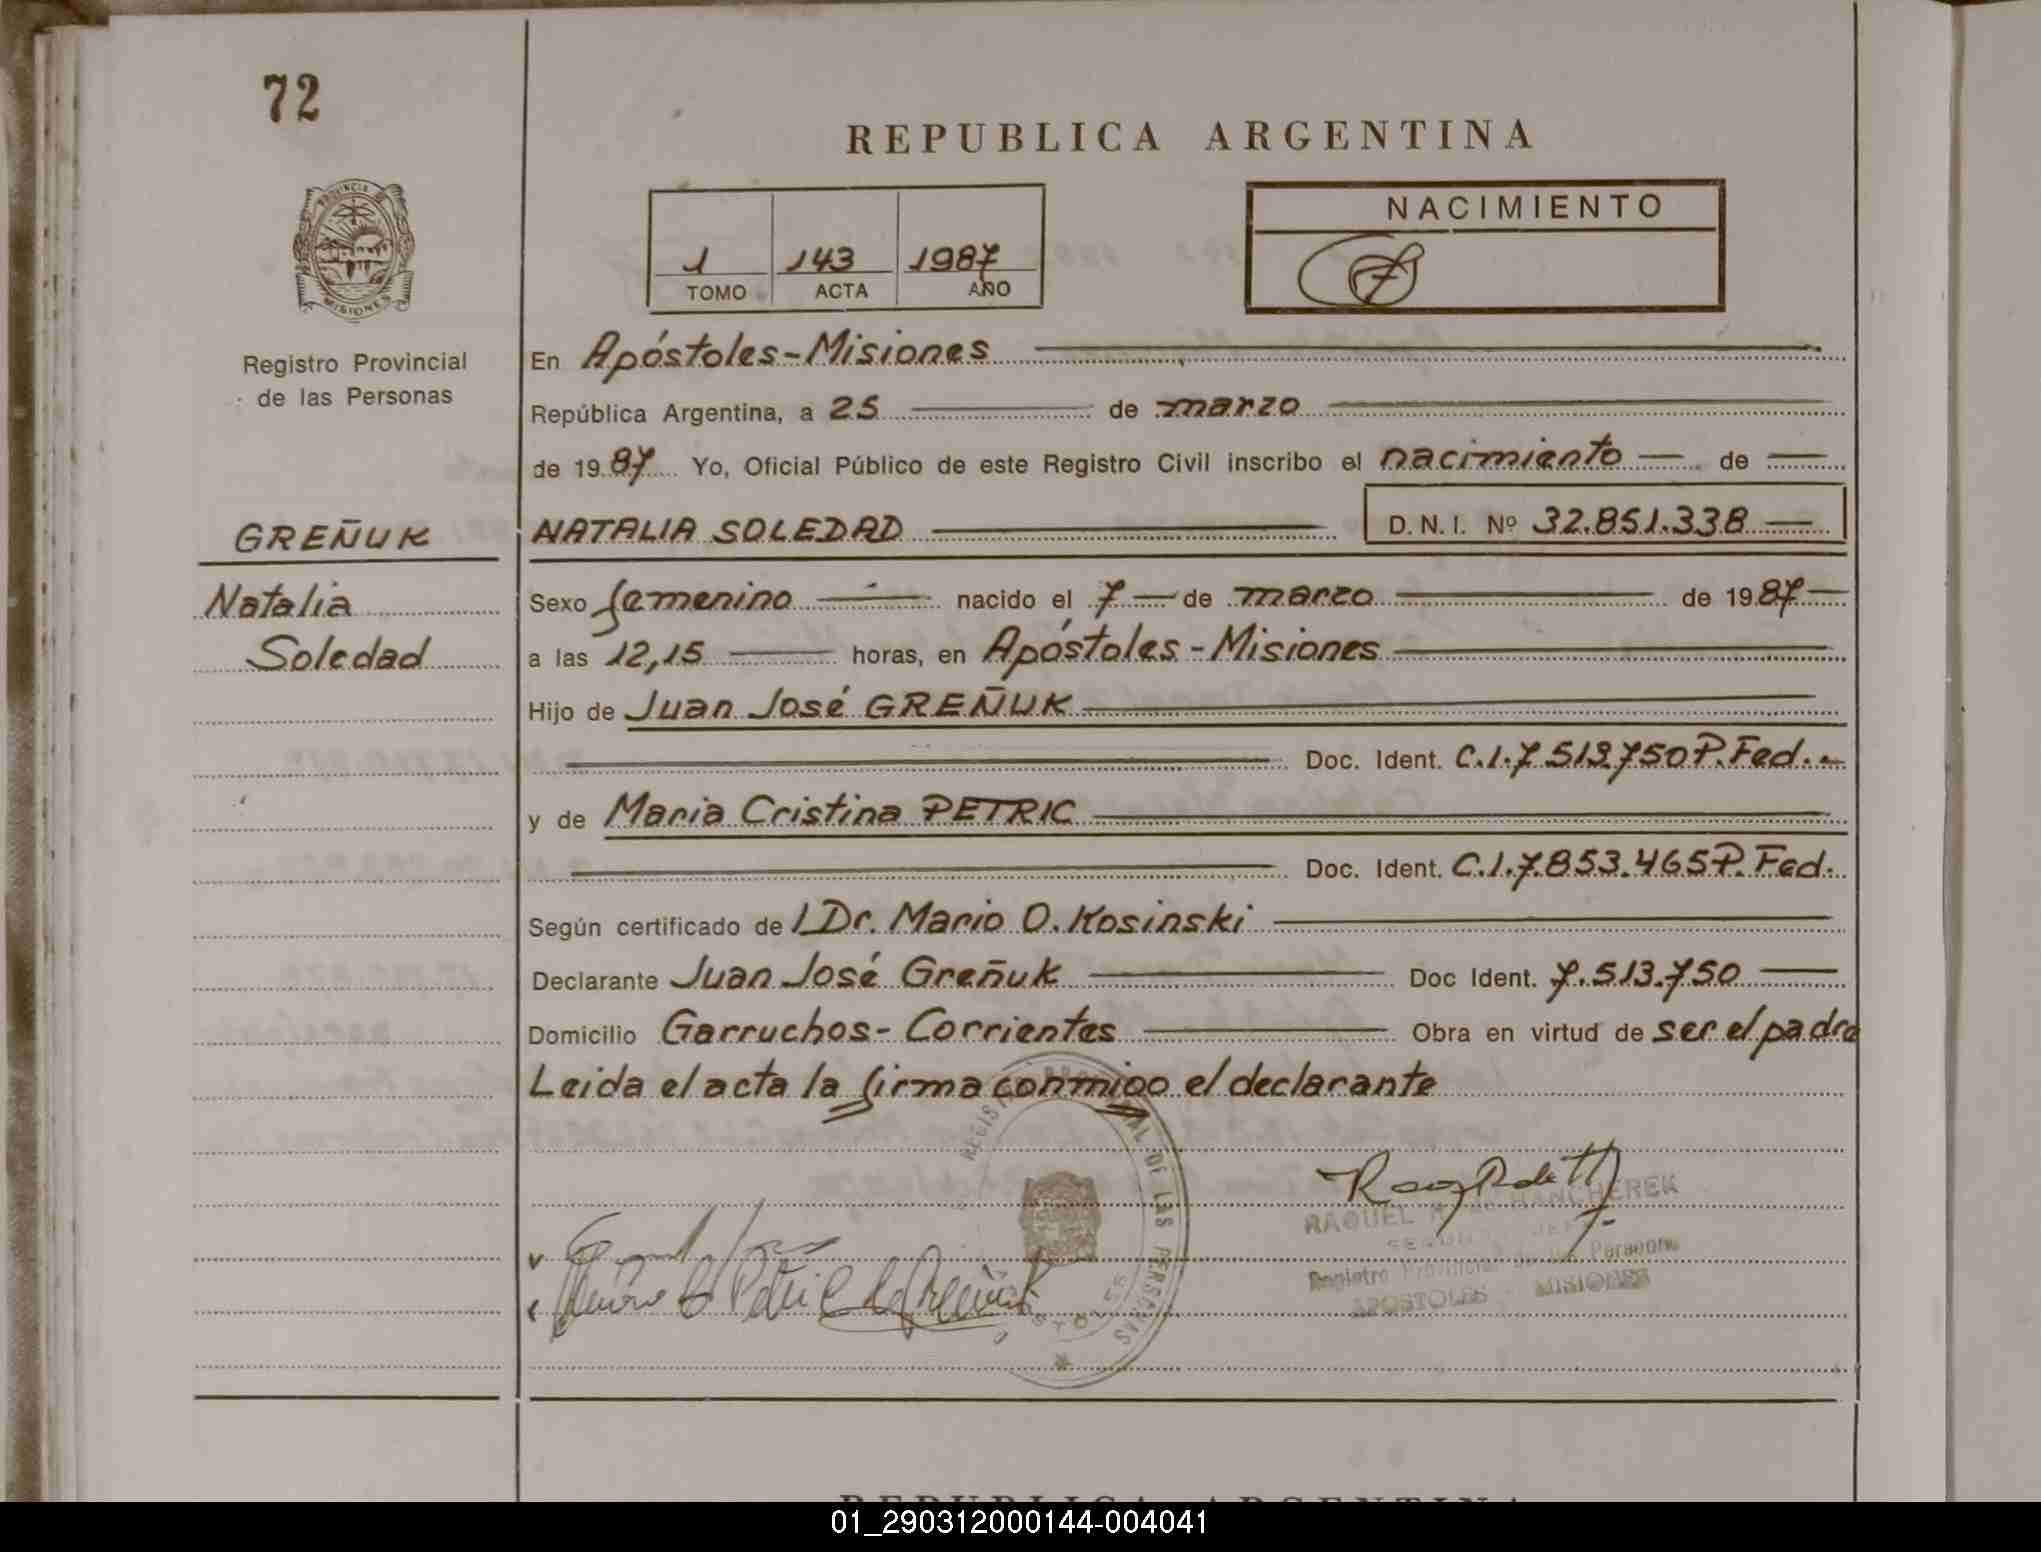 72
REPUBLICA ARGENTINA
PROVINCIA DE
MISIONES
1 143 1987
TOMO ACTA AÑO
NACIMIENTO
Registro Provincial
de las Personas
En Apóstoles-Misiones
República Argentina, a 25 de marzo
de 1987 Yo, Oficial Público de este Registro Civil inscribo el nacimiento de
GREÑUK NATALIA SOLEDAD D. N. I. Nº 32.851.338
Natalia Sexo femenino nacido el 7 de marzo de 1987
Soledad a las 12,15 horas, en Apóstoles - Misiones
Hijo de Juan José GREÑUK
Doc. Ident. C.I.7.513.750 P. Fed.
y de Maria Cristina PETRIC
Doc. Ident. C.I.7.853.465 P. Fed.
Según certificado de l Dr. Mario O. Kosinski
Declarante Juan José Greñuk Doc Ident. 7.513.750
Domicilio Garruchos - Corrientes Obra en virtud de ser el padre
Leida el acta la firma conmigo el declarante
REGISTRO PROVINCIAL DE LAS PERSONAS
RAQUEL HANCHEREK
Registro Provincial de las Personas
APOSTOLES - MISIONES
REPUBLICA ARGENTINA
01_290312000144-004041